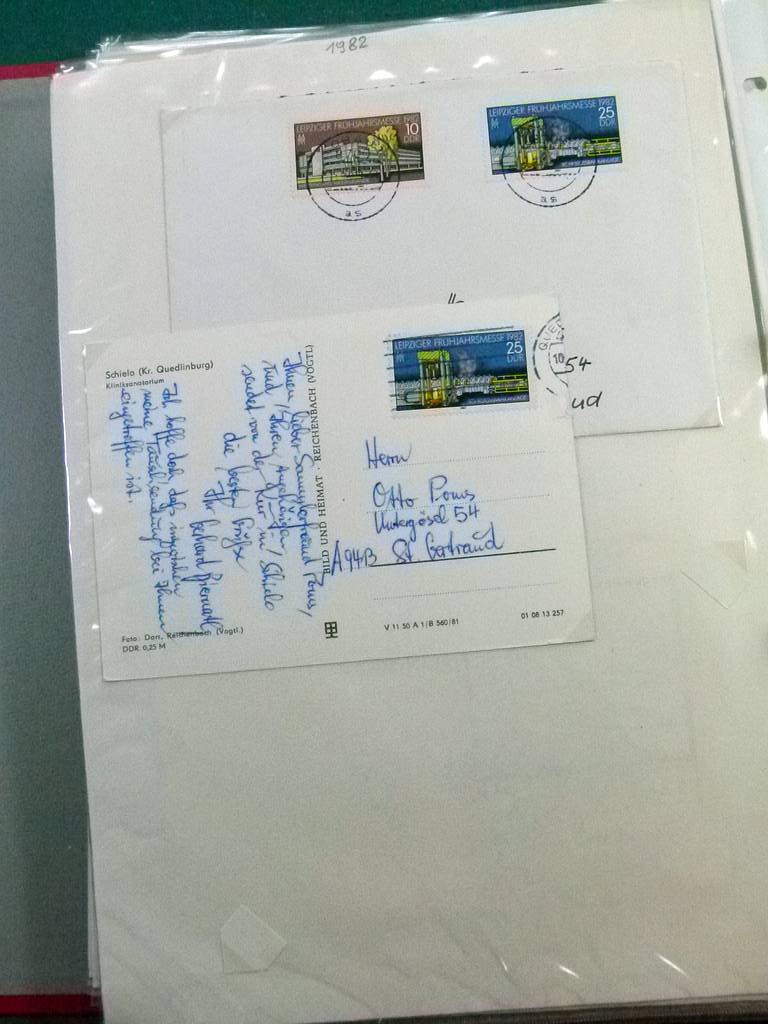 1982
LEIPZIGER FRÜHJAHRSMESSE 1982
10
DDR
LEIPZIGER FRÜHJAHRSMESSE 1982
25
DDR
as
as
54
ud
10
Schielo (Kr. Quedlinburg)
Kliniksanatorium
LEIPZIGER FRÜHJAHRSMESSE 1982
25
DDR
Ihnen, lieber Sammlerfreund Poms,
und Ihren Angehörigen,
sendet von der Kur in Schielo
die besten Grüße
Ihr Gerhard
Ich hoffe doch, daß inzwischen
meine Tauschsendung bei Ihnen
eingetroffen ist.
BILD UND HEIMAT · REICHENBACH (VOGTL)
Herrn
Otto Poms
Untergösel 54
A 9413 St. Gertraud
Foto: Darr, Reichenbach (Vogtl.)
DDR 0,25 M
V 11 50 A 1/B 560/81
01 08 13 257